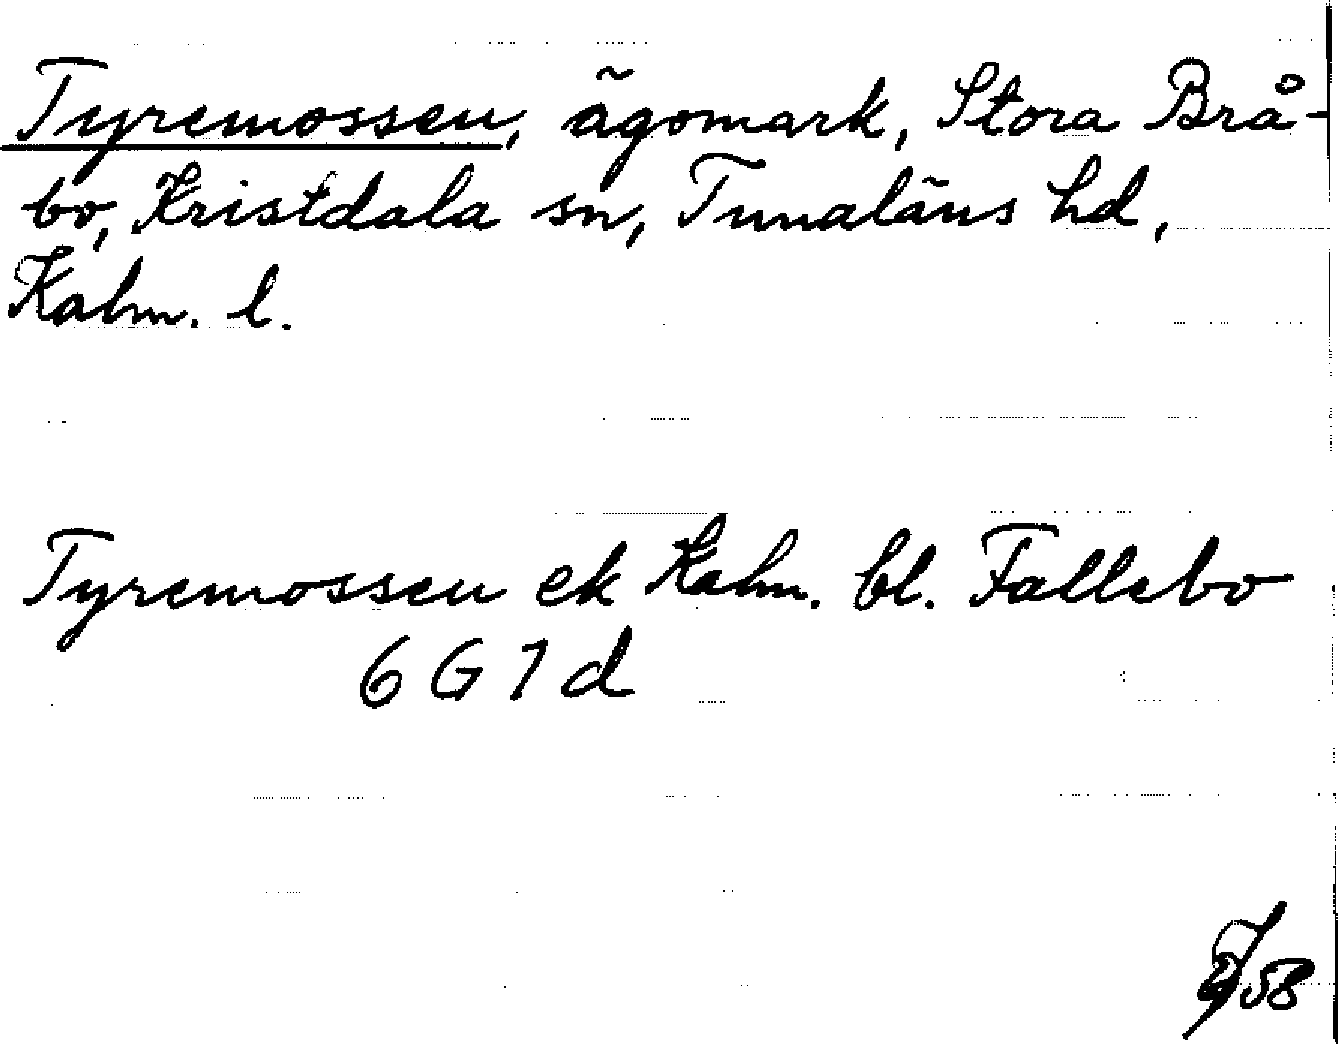 Tyremossen, ägomark, Stora Brå-
bo, Kristdala sn, Tunaläns hd,
Kalm. l.
Tyremossen ek Kalm. bl. Fallebo
6 G 7 d
58